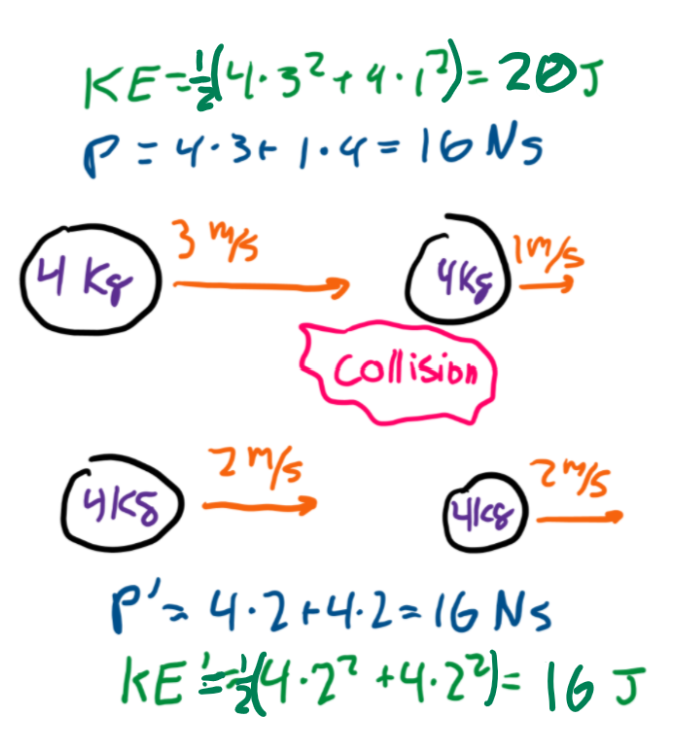 KE=½(4·3²+4·1²)=20J
P=4·3+1·4=16 Ns
4 Kg 3 m/s 4Kg 1m/s
Collision
4Kg 2 m/s 4kg 2 m/s
P'=4·2+4·2=16 Ns
KE'=½(4·2²+4·2²)=16 J